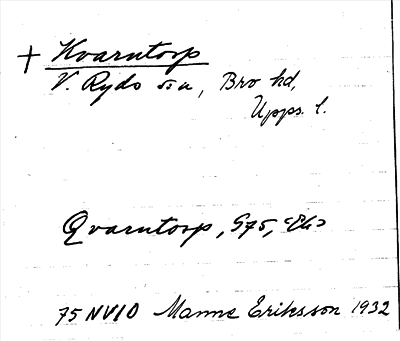 + Kvarntorp
V. Ryds sn, Bro hd,
Upps. l.
Qvarntorp, G75, <Ek>
75 NV10 Manne Eriksson 1932